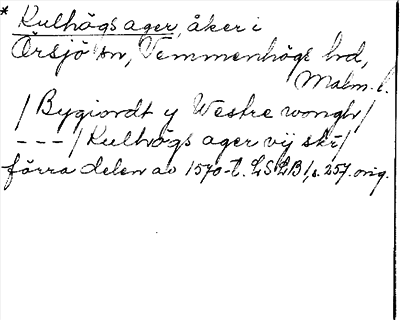 * Kulhögs ager, åker i
Örsjö sn, Vemmenhögs hd,
Malm. l.
/ Bygiordt y Westre wongh /
- - - / Kulhögs ager vij skr /
förra delen av 1570-t. LSLB 1, s. 257. orig.